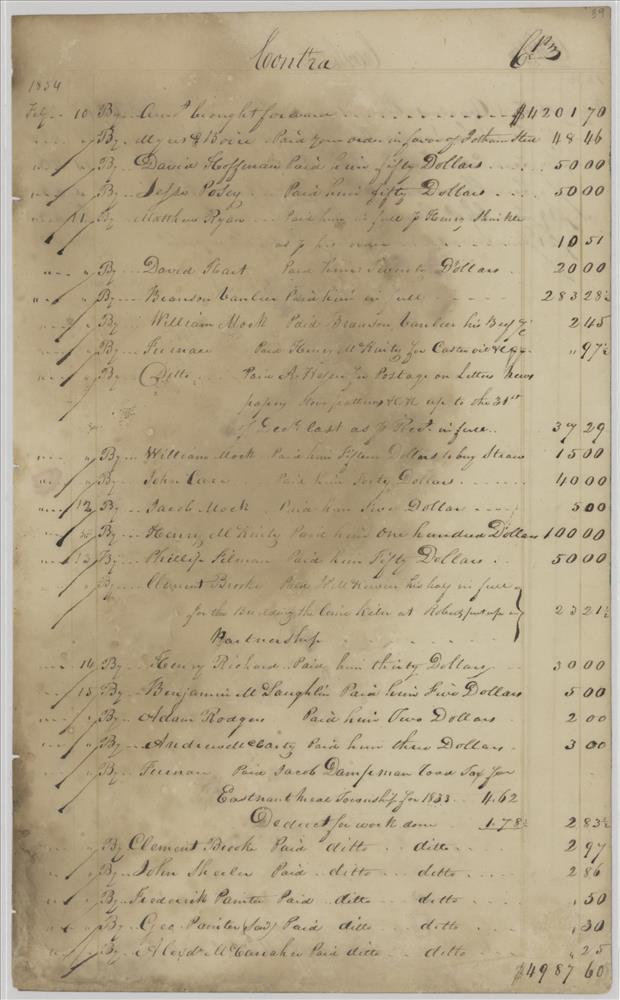 39
Contra Crm
1834
Feby 10 By Amt brought forward $4201 70
" " By Myers & Boise Paid your order in favor of Jotham Steel 48 46
" " By David Hoffman Paid him fifty Dollars 50 00
" " By Jesse Posey Paid him fifty Dollars 50 00
" 11 By Matthew Ryan Paid him in full p Henry
as p his order 10 51
" " By David Hart Paid him Twenty Dollars 20 00
" " By Branson Paid him in full 283 28½
" " By William Mock Paid Branson his Beef &c 2 45
" " By Furnace Paid Henry McKinty for Castor oil &c " 97½
" " By Ditto Paid A. for Postage on Letters News
papers &c up to the 31st
of Decr last as p Rect in full 37 29
" " By William Mock Paid him fifteen Dollars to buy Straw 15 00
" " By John Paid him Forty Dollars 40 00
" 12 By Jacob Mock Paid him Five Dollars 5 00
" " By Henry McKinty Paid him One hundred Dollars 100 00
" 13 By Phillip Filman Paid him Fifty Dollars 50 00
" " By Clement Brooke Paid his half in full
for the Building the at put up in
Partnership 23 21½
" 14 By Henry Richard Paid him thirty Dollars 30 00
" 15 By Benjamin McLaughlin Paid him Five Dollars 5 00
" " By Adam Rodgers Paid him Two Dollars 2 00
" " By Andrew McCarty Paid him three Dollars 3 00
" " By Furnace Paid Jacob Dampman Road Tax for
East nantmeal Township for 1833 4.62
Deduct for work done 1.78½ 2 83½
" " By Clement Brooke Paid ditto ditto 2 97
" " By John Sheeler Paid ditto ditto 2 86
" " By Frederick Painter Paid ditto ditto " 50
" " By Geo Painter (Saw) Paid ditto ditto " 30
" " By Alexdr McCanaher Paid ditto ditto " 25
$4987 60